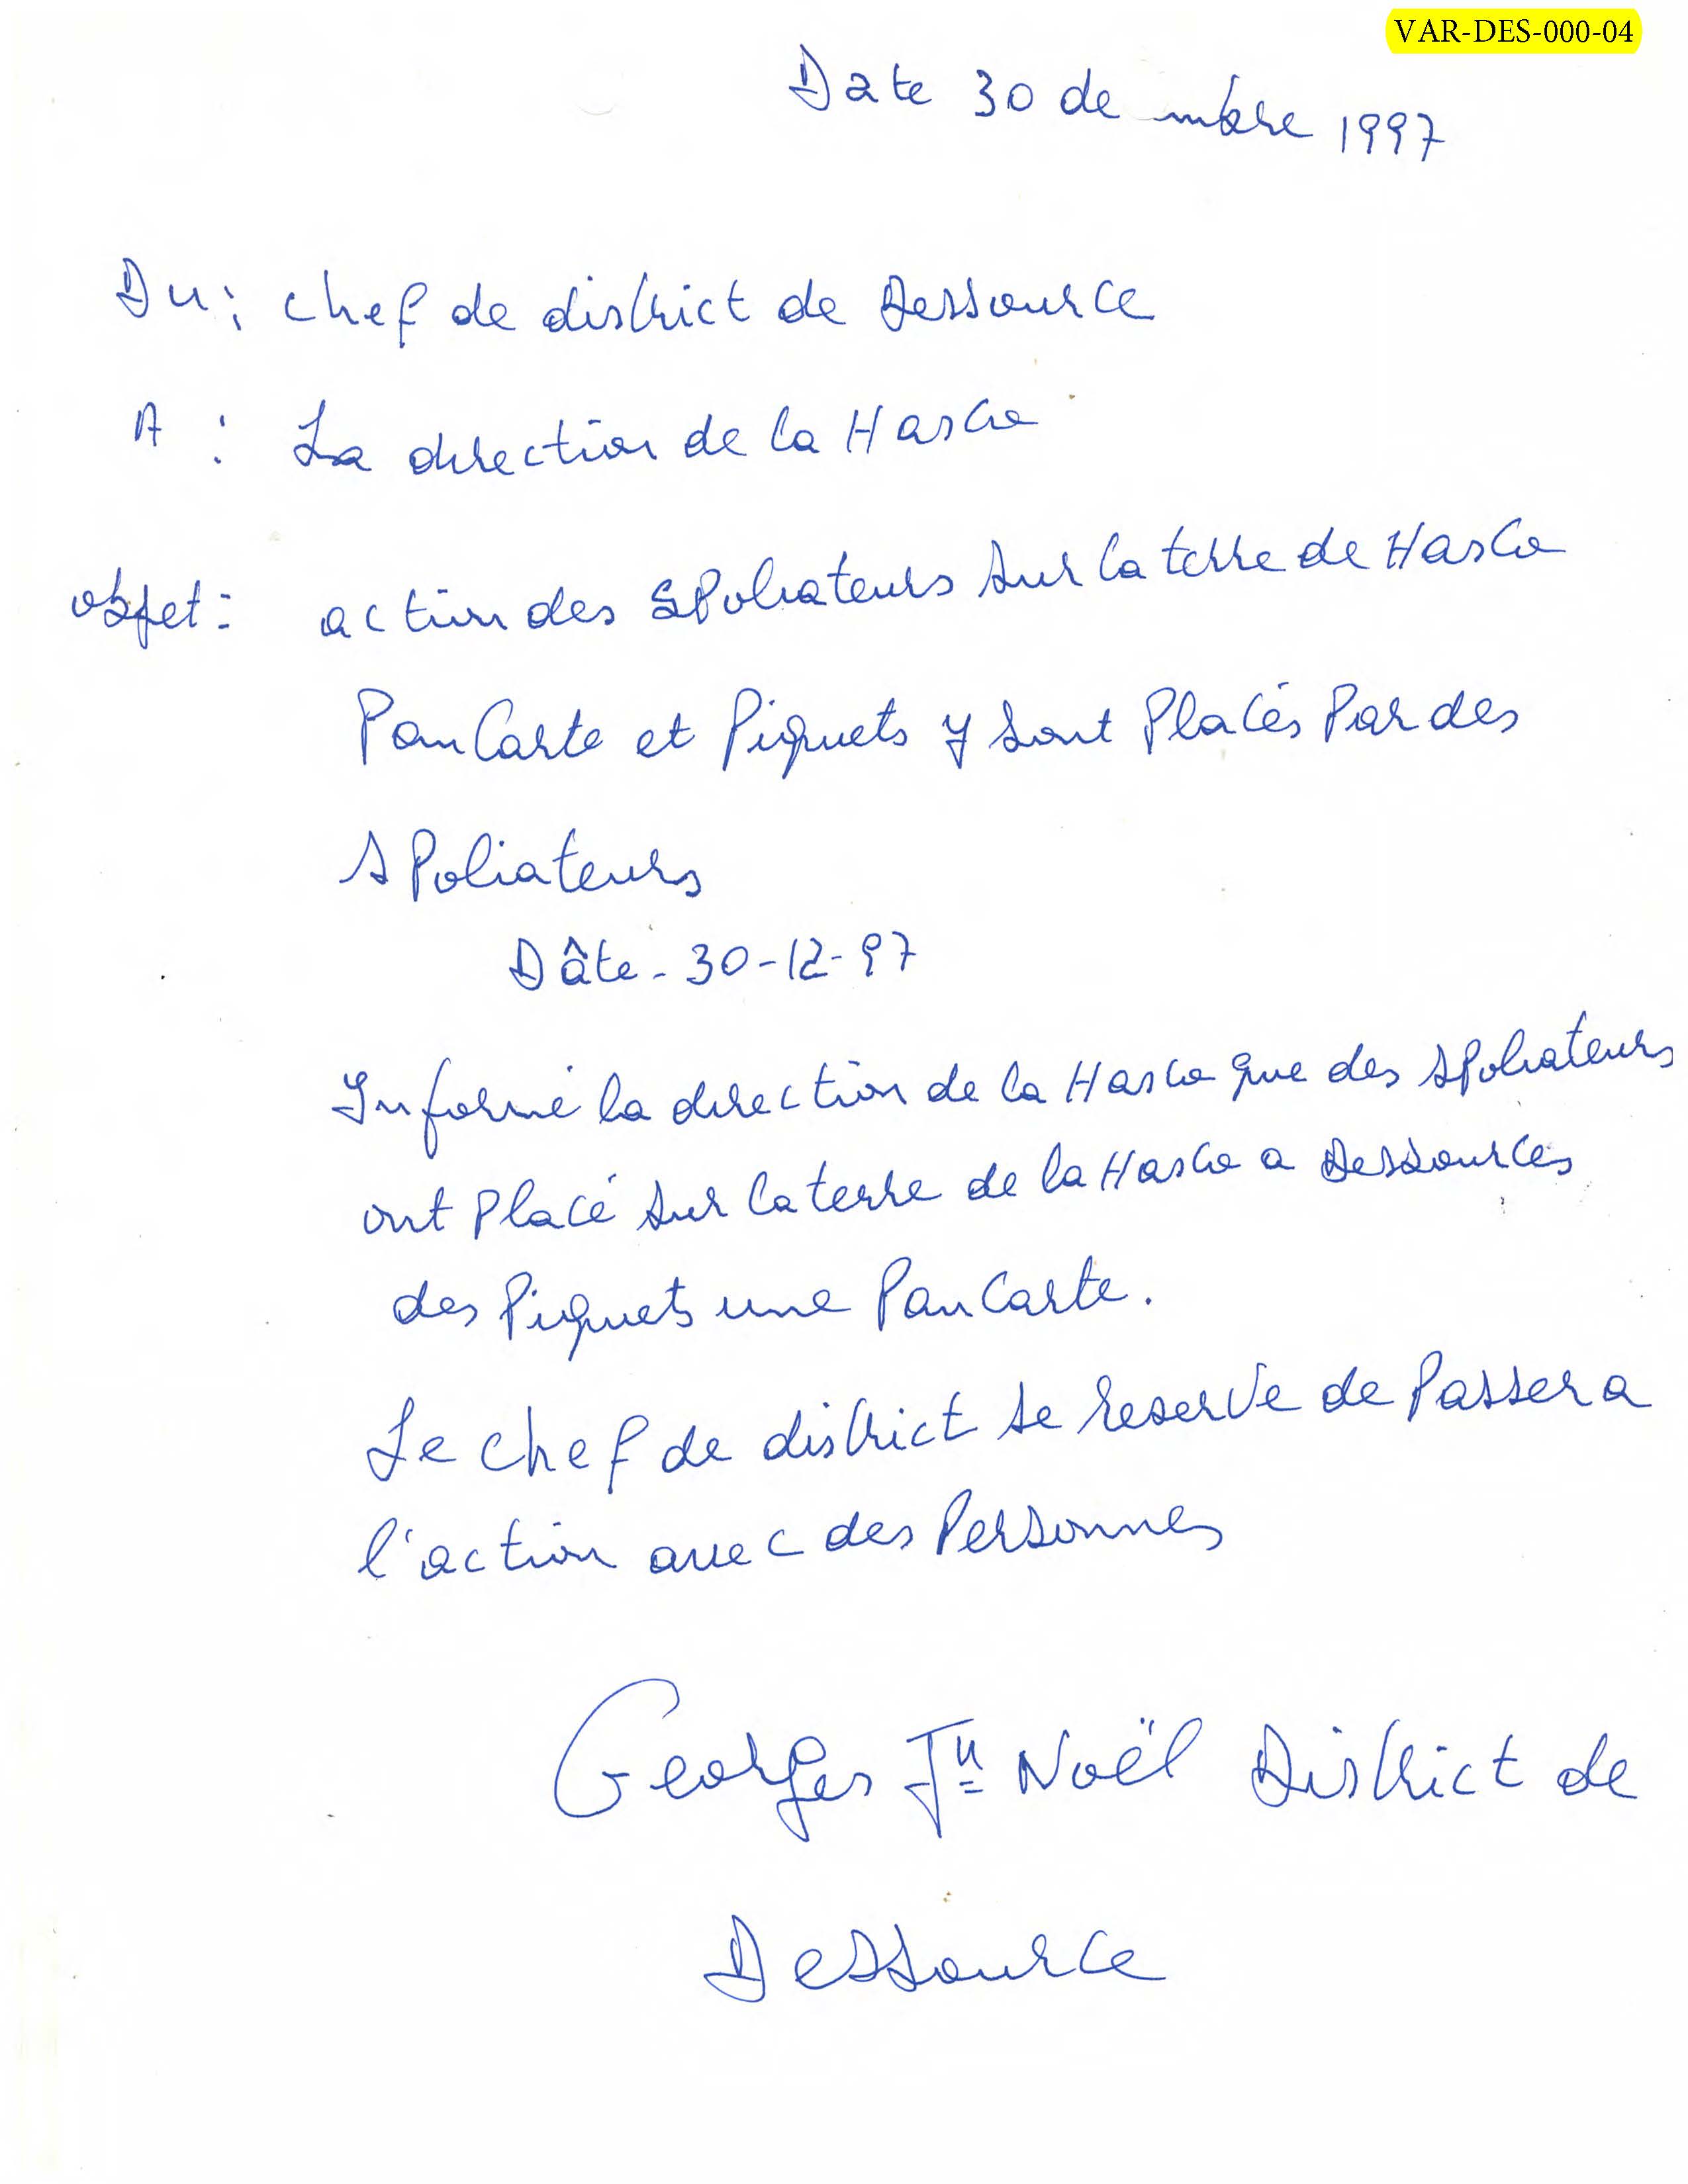 VAR-DES-000-04
Date 30 de mbre 1997
Du : chef de district de Dessource
A : La direction de la Hasco
objet : action des spoliateurs sur la terre de Hasco
PanCarte et Piquets y sont Placés Par des
sPoliateurs
Dâte - 30-12-97
Informé la direction de la Hasco que des sPoliateurs
ont Placé sur la terre de la Hasco a Dessources
des Piquets une PanCarte.
Le chef de district se reserve de Passer a
l'action avec des Personnes
Georges Jn Noël District de
Dessource